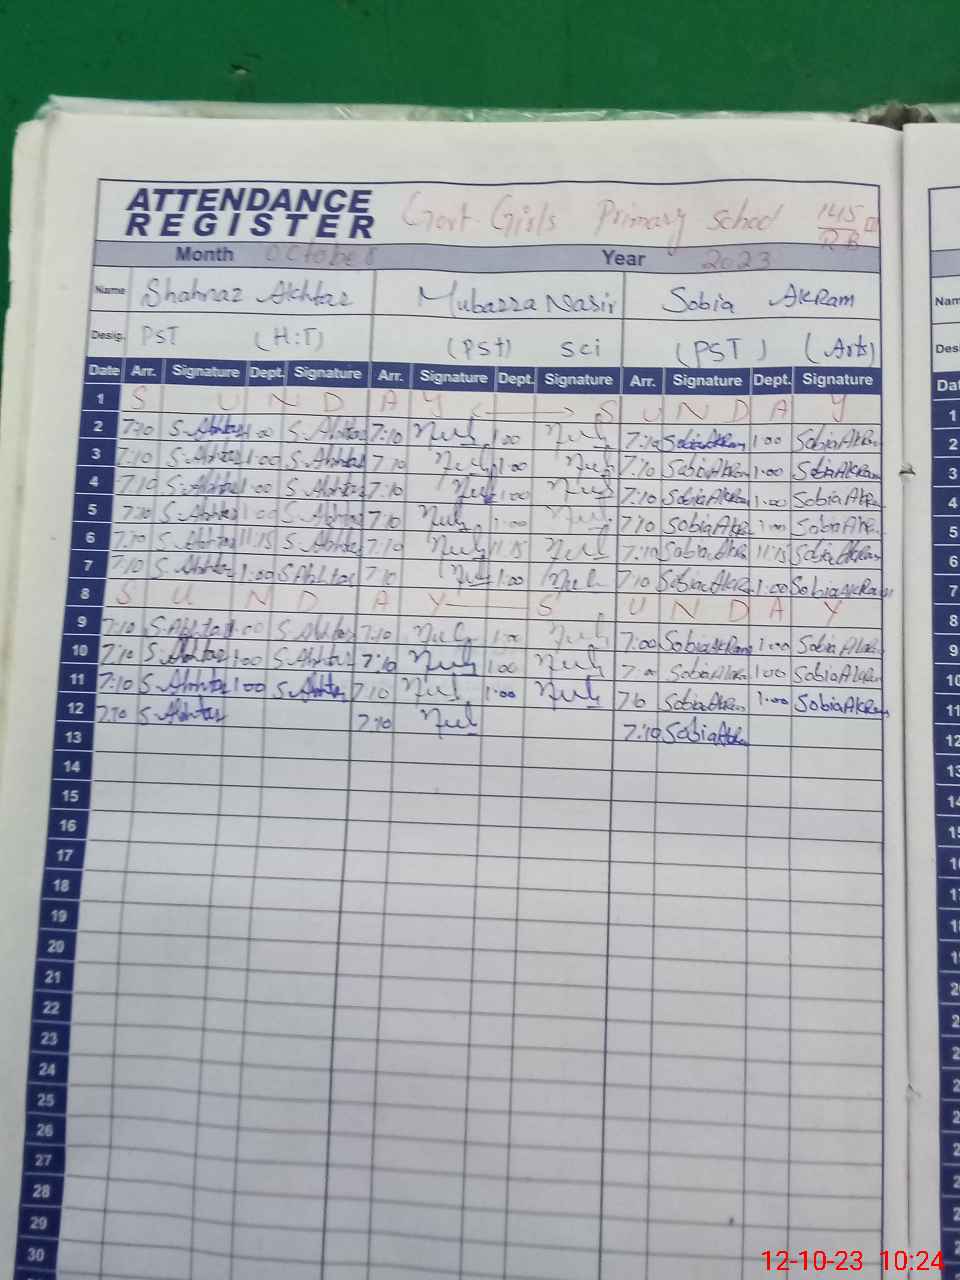 ATTENDANCE
REGISTER
Govt Girls Primary School 145 RB
Month October Year 2023
Name Shahnaz Akhtar Mubazza Nasir Sobia AKRam
Desig. PST (H:T) (PST) Sci (PST) (Arts)
Date Arr. Signature Dept. Signature Arr. Signature Dept. Signature Arr. Signature Dept. Signature
1 S U N D A Y S U N D A Y
2 7:10 S.Akhtar 1:00 S.Akhtar 7:10 1:00 7:10 SobiaAkRam 1:00 SobiaAkRam
3 7:10 S.Akhtar 1:00 S.Akhtar 7:10 1:00 7:10 SobiaAkRam 1:00 SobiaAkRam
4 7:10 S.Akhtar 1:00 S.Akhtar 7:10 1:00 7:10 SobiaAkRam 1:00 SobiaAkRam
5 7:10 S.Akhtar 1:00 S.Akhtar 7:10 1:00 7:10 1:00
6 7:10 S.Akhtar 11:15 S.Akhtar 7:10 11:15 7:10 11:15 SobiaAkRam
7 7:10 S.Akhtar 1:00 S.Akhtar 7:10 1:00 7:10 SobiaAkRam 1:00 SobiaAkRam
8 S U N D A Y S U N D A Y
9 7:10 S.Akhtar 1:00 S.Akhtar 7:10 1:00 7:00 SobiaAkRam 1:00 SobiaAkRam
10 7:10 S.Akhtar 1:00 S.Akhtar 7:10 1:00 SobiaAkRam 1:00 SobiaAkRam
11 7:10 S.Akhtar 1:00 S.Akhtar 7:10 1:00 SobiaAkRam 1:00 SobiaAkRam
12 7:10 S.Akhtar 7:10 7:10 SobiaAkRam
13
14
15
16
17
18
19
20
21
22
23
24
25
26
27
28
29
30
12-10-23 10:24